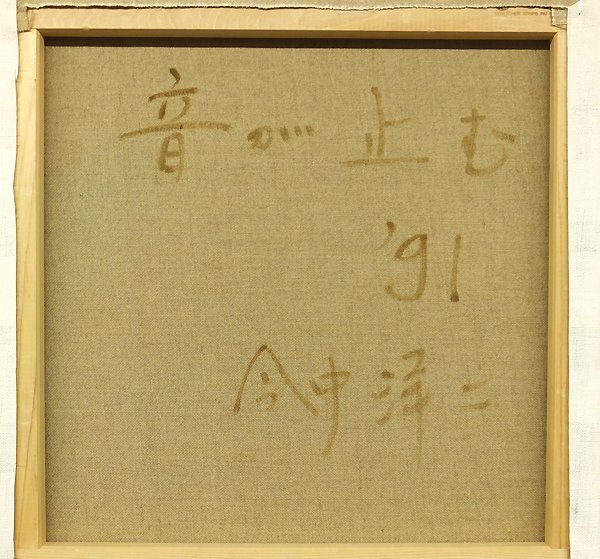 音が止む
'91
今中洋二